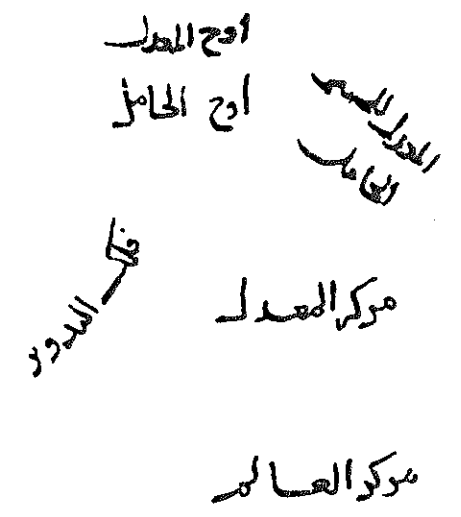 اوج المعدل
اوج الحامل
المعدل
الحامل
فلك التدوير
مركز المعدل
مركز العالم